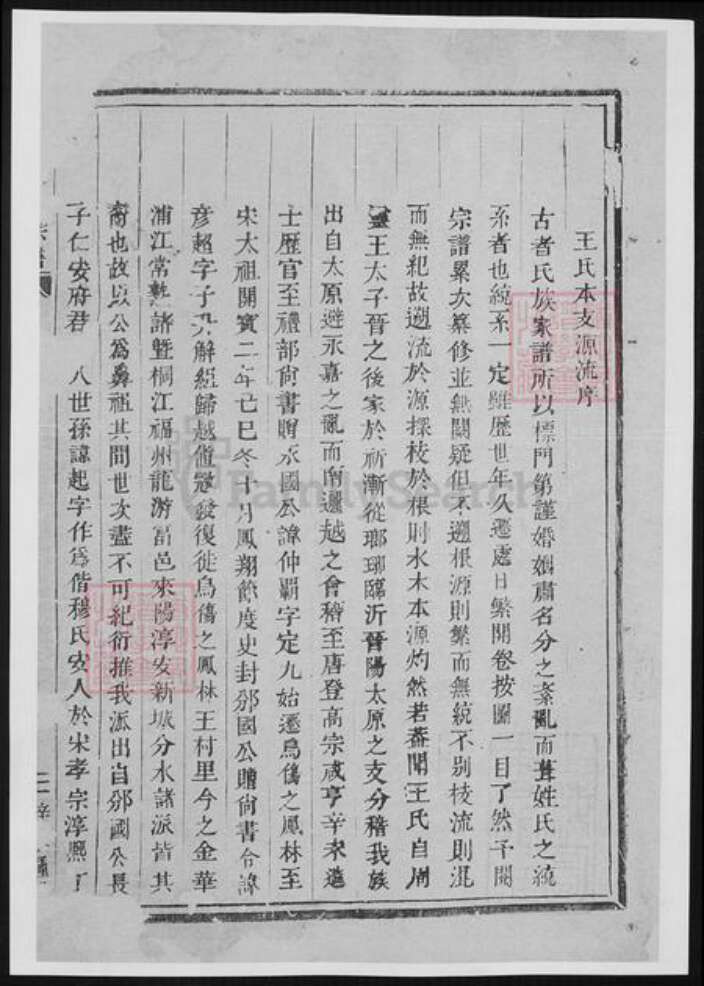 王氏本支源流序
古者氏族家譜所以標門第謹婚姻肅名分之紊亂而葺姓氏之統
系者也統系一定雖歷世年久遷處日繁開卷按圖一目了然予閱
宗譜累次纂修並無闕疑但不遡根源則繁而無統不別枝流則混
而無紀故遡流於源探枝於根則水木本源灼然若蓍聞王氏自周
靈王太子晉之後家於祈漸從瑯琊臨沂晉陽太原之支分稽我族
出自太原避永嘉之亂而南遷越之會稽至唐登高宗咸亨辛未進
士歷官至禮部尙書贈永國公諱仲覇字定九始遷烏傷之鳳林至
宋太祖開寶二年己巳冬十月鳳翔節度史封邠國公贈尙書令諱
彥超字子 解組歸越 復徙烏傷之鳳林王村里今之金華
浦江常 諸暨桐江福州龍游富邑來陽淳安新城分水諸派皆其
裔也故以公爲鼻祖其間世次盡不可紀衍推我派出自邠國公長
子仁安府君 八世孫諱起字作爲偕穆氏安人於宋孝宗淳熙丁
FamilySearch